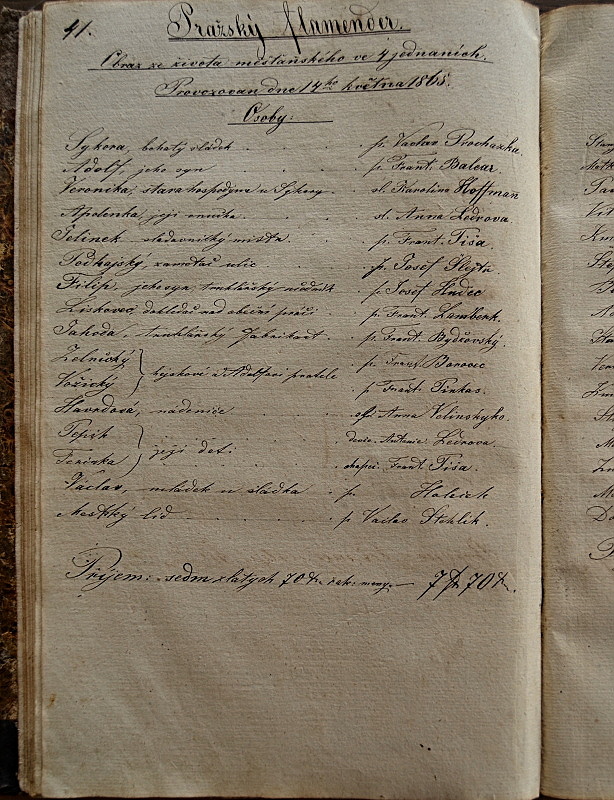 41.
Pražský flamender.
Obraz ze života měšťanského ve 4 jednáních.
Provozován dne 14ho května 1865.
Osoby:
Sykora, bohatý sládek . . . . p. Vaclav Prochazka.
Adolf, jeho syn . . . . p. Frant. Balcar.
Veronika, stara hospodyne u Sykory . sl. Karolina Hoffman
Apolenka, její vnučka . . . . sl. Anna Ledrova.
Jelinek sladovnický mistr. . . . p. Frant. Tisa.
Podhajský, zametač ulic . . . p. Josef Slejtr.
Filip, jeho syn, truhlářský p. Josef Hudec
Liskovec, dohledač nad obecní prací . p. Frant. Lamberk.
Jahoda, truhlářský fabrikant. . p. Frant. Bydžovský.
Zelničký p. Frant Borovec
Vožický hejskové a Adolfovi pratele p. Frant. Pinkas.
Havrdová, nadenice . . . Anna Velinskyho
Pepik Antonie Ledrova.
její deti.
Terinka Frant Tisa.
Václav, mládek u sládka . p. Holeček
Mestký lid . . . . p. Vaclav Stehlik.
Příjem: sedm zlatych 70 kr. rak. meny. — 7 fl 70 kr.